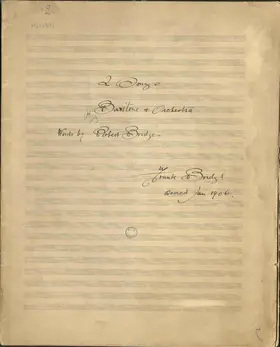 2 Songs
for Baritone & Orchestra
Words by Robert Bridges
Frank Bridge
scored Jan 1906.